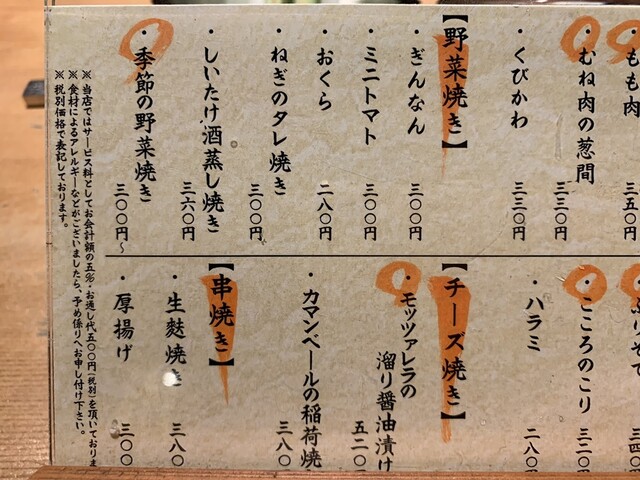 ・もも肉 三五〇
・むね肉の葱間 三三〇円
・くびかわ 三三〇円
【野菜焼き】
・ぎんなん 三〇〇円
・ミニトマト 三〇〇円
・おくら 二八〇円
・ねぎのタレ焼き 三〇〇円
・しいたけ酒蒸し焼き 三六〇円
・季節の野菜焼き 三〇〇円〜
・こころのこり 三二〇
・ハラミ 二八〇
【チーズ焼き】
・モッツァレラの
溜り醤油漬け 五二〇
・カマンベールの稲荷焼 三八〇
【串焼き】
・生麩焼き 三八〇
・厚揚げ 三〇〇
※当店ではサービス料としてお会計額の五%・お通し代五〇〇円(税別)を頂いておりま
※食材によるアレルギーなどがございましたら、予め係りへお申し付け下さい。
※税別価格で表記しております。